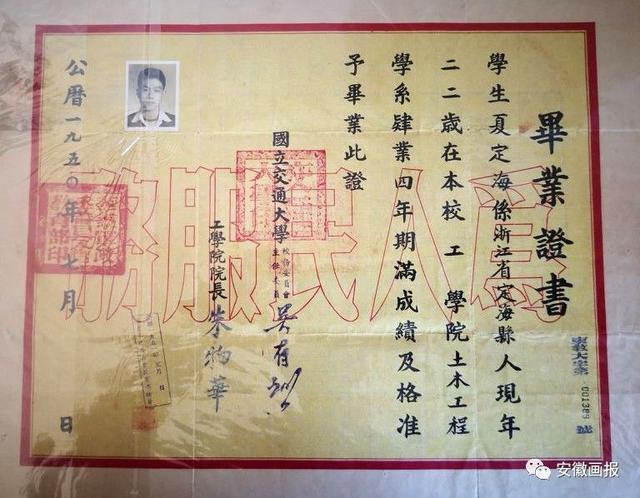 畢業證書
學生夏定海係浙江省定海縣人現年
二二歲在本校工學院土木工程
學系肄業四年期滿成績及格准
予畢業此證
國立交通大學
校務委員會
主任委員
吳有訓
工學院院長 朱物華
公曆一九五〇年七月 日
爲人民服務
001389 號
安徽画报